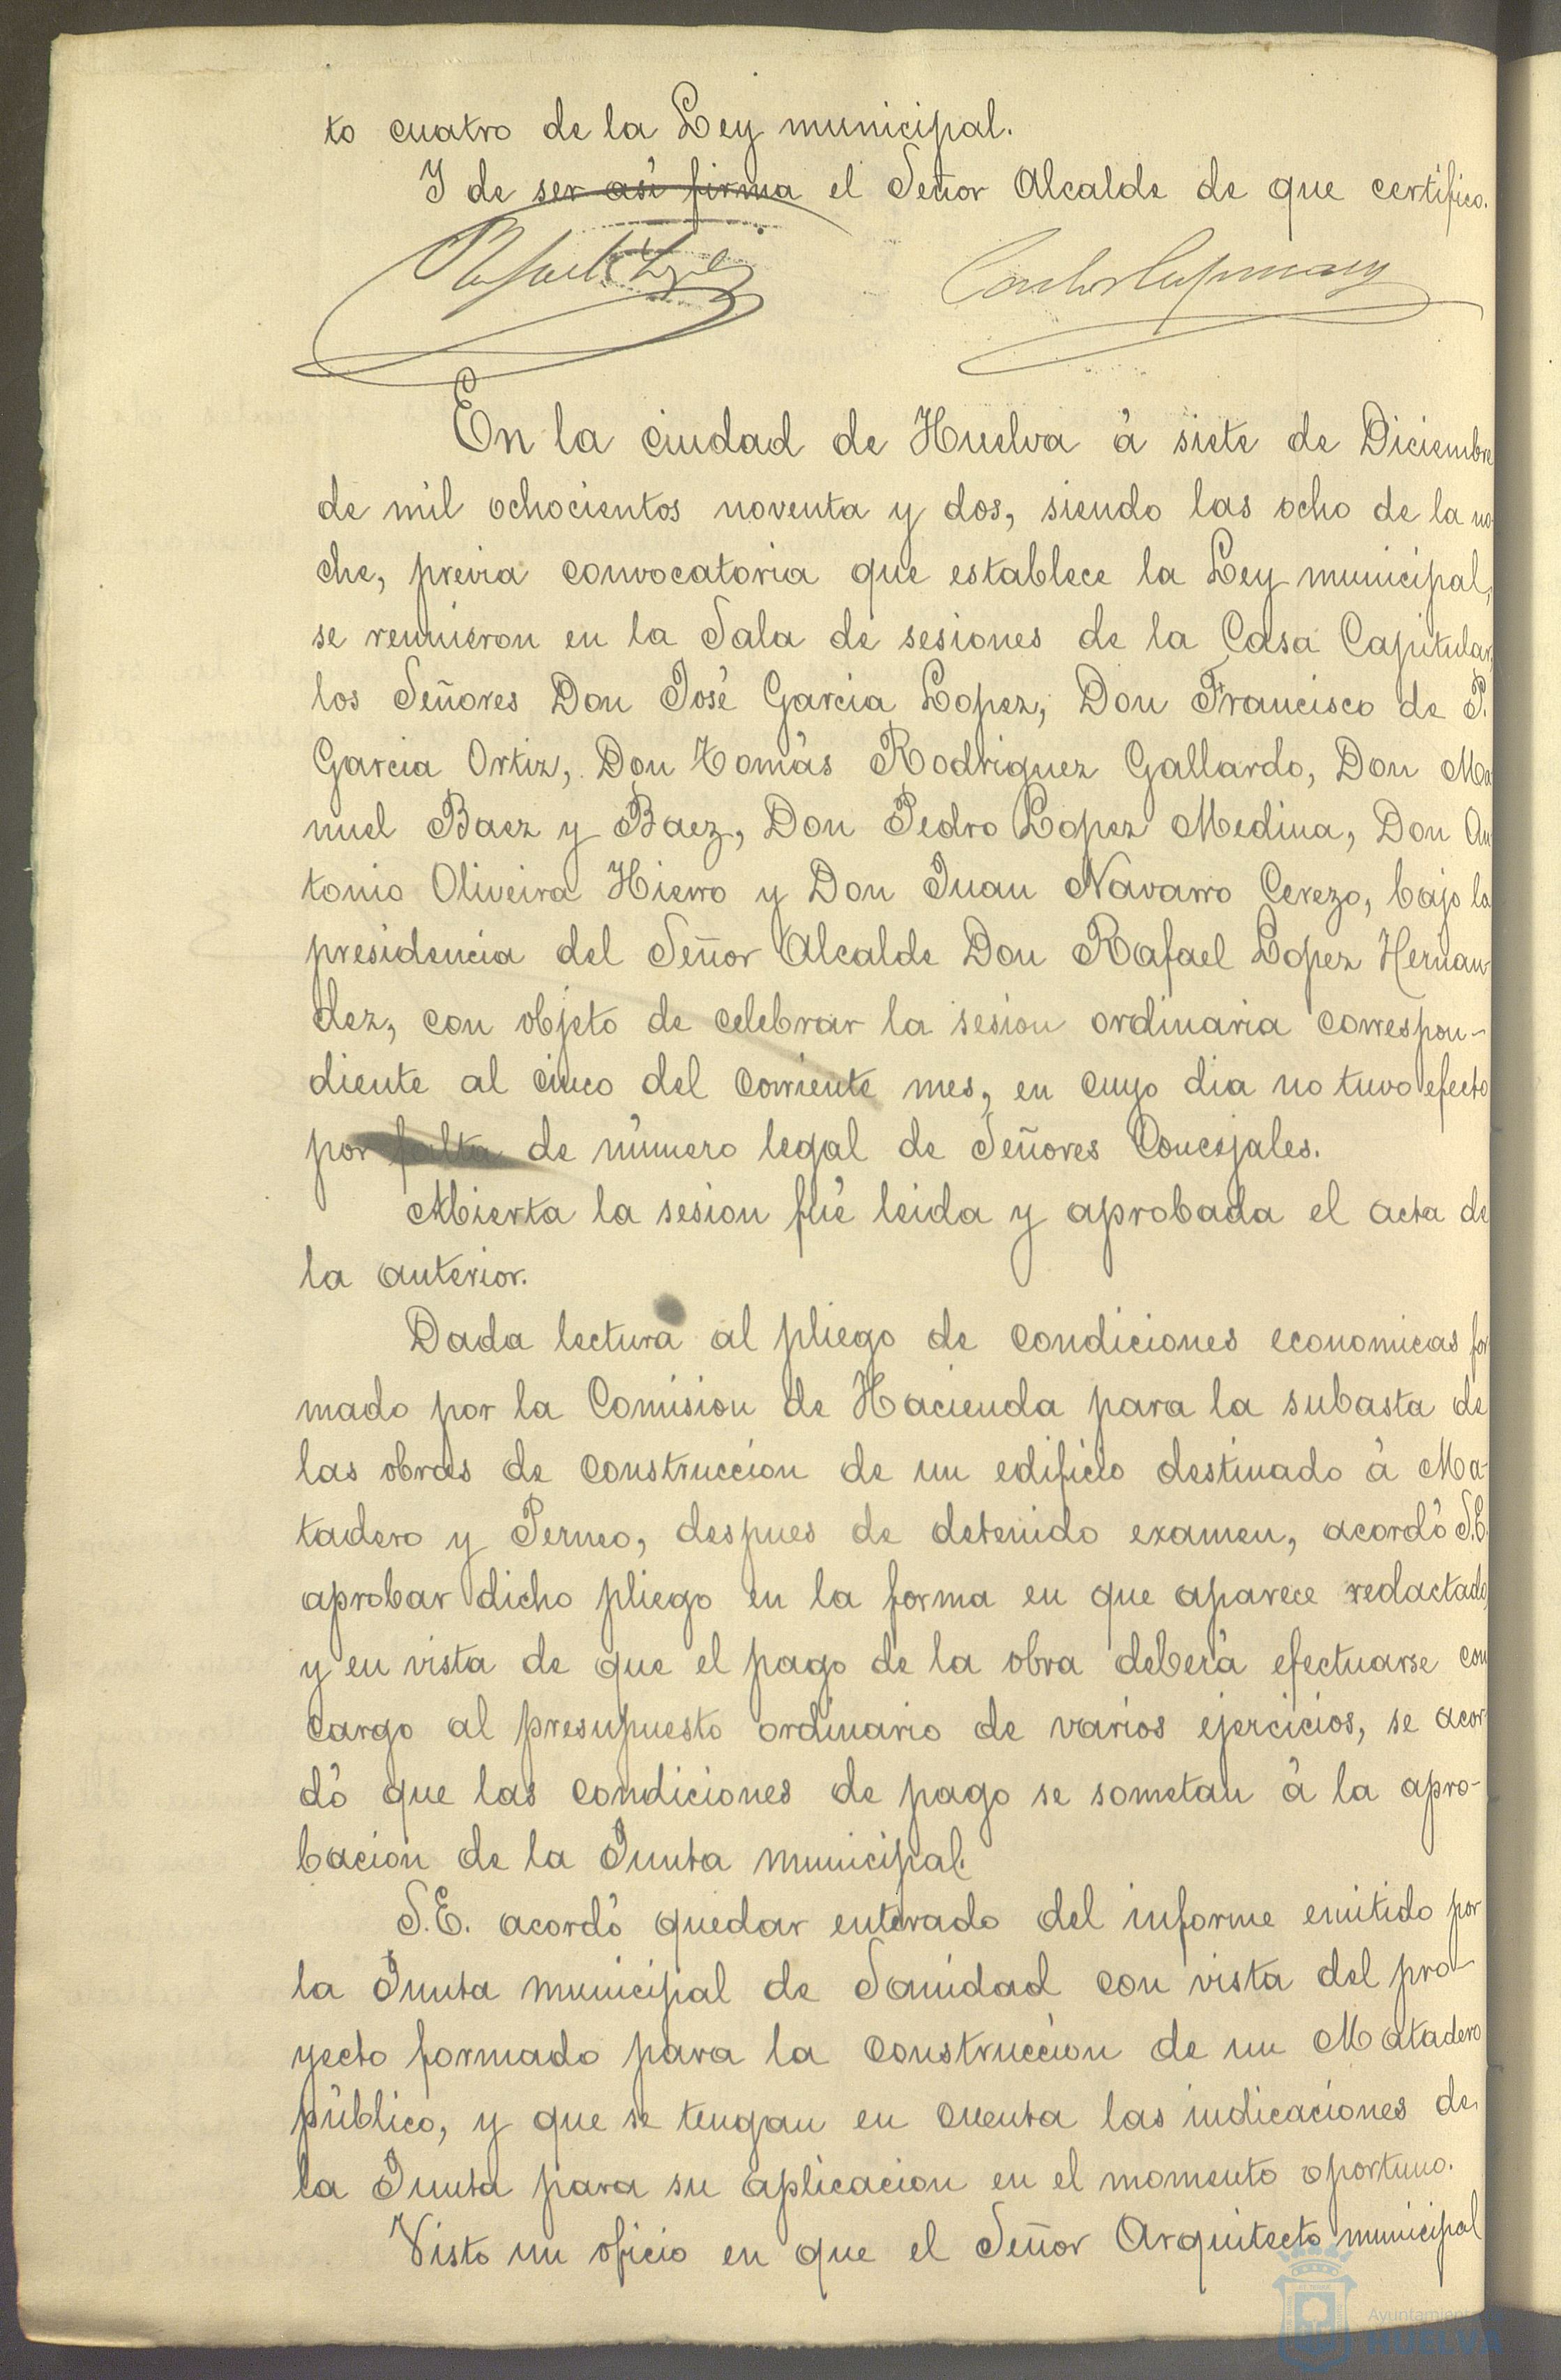 to cuatro de la Ley municipal.
Y de ser así firma el Señor Alcalde de que certifico.
En la ciudad de Huelva á siete de Diciembre
de mil ochocientos noventa y dos, siendo las ocho de la no
che, previa convocatoria que establece la Ley municipal,
se reunieron en la Sala de sesiones de la Casa Capitular,
los Señores Don José Garcia Lopez, Don Francisco de P.
Garcia Ortiz, Don Tomás Rodriguez Gallardo, Don Ma
nuel Baez y Baez, Don Pedro Lopez Medina, Don An
tonio Oliveira Hierro y Don Juan Navarro Cerezo, bajo la
presidencia del Señor Alcalde Don Rafael Lopez Hernan
dez, con objeto de celebrar la sesion ordinaria correspon-
diente al cinco del corriente mes, en cuyo dia no tuvo efecto
por falta de número legal de Señores Concejales.
Abierta la sesion fué leida y aprobada el acta de
la anterior.
Dada lectura al pliego de condiciones economicas for
mado por la Comision de Hacienda para la subasta de
las obras de construccion de un edificio destinado á Ma-
tadero y Perneo, despues de detenido examen, acordó S.E.
aprobar dicho pliego en la forma en que aparece redactado,
y en vista de que el pago de la obra deberá efectuarse con
cargo al presupuesto ordinario de varios ejercicios, se acor
dó que las condiciones de pago se sometan á la apro-
bacion de la Junta municipal.
S.E. acordó quedar enterado del informe emitido por
la Junta municipal de Sanidad con vista del pro-
yecto formado para la construccion de un Matadero
público, y que se tengan en cuenta las indicaciones de
la Junta para su aplicacion en el momento oportuno.
Visto un oficio en que el Señor Arquitecto municipal
Ayuntamiento
HUELVA